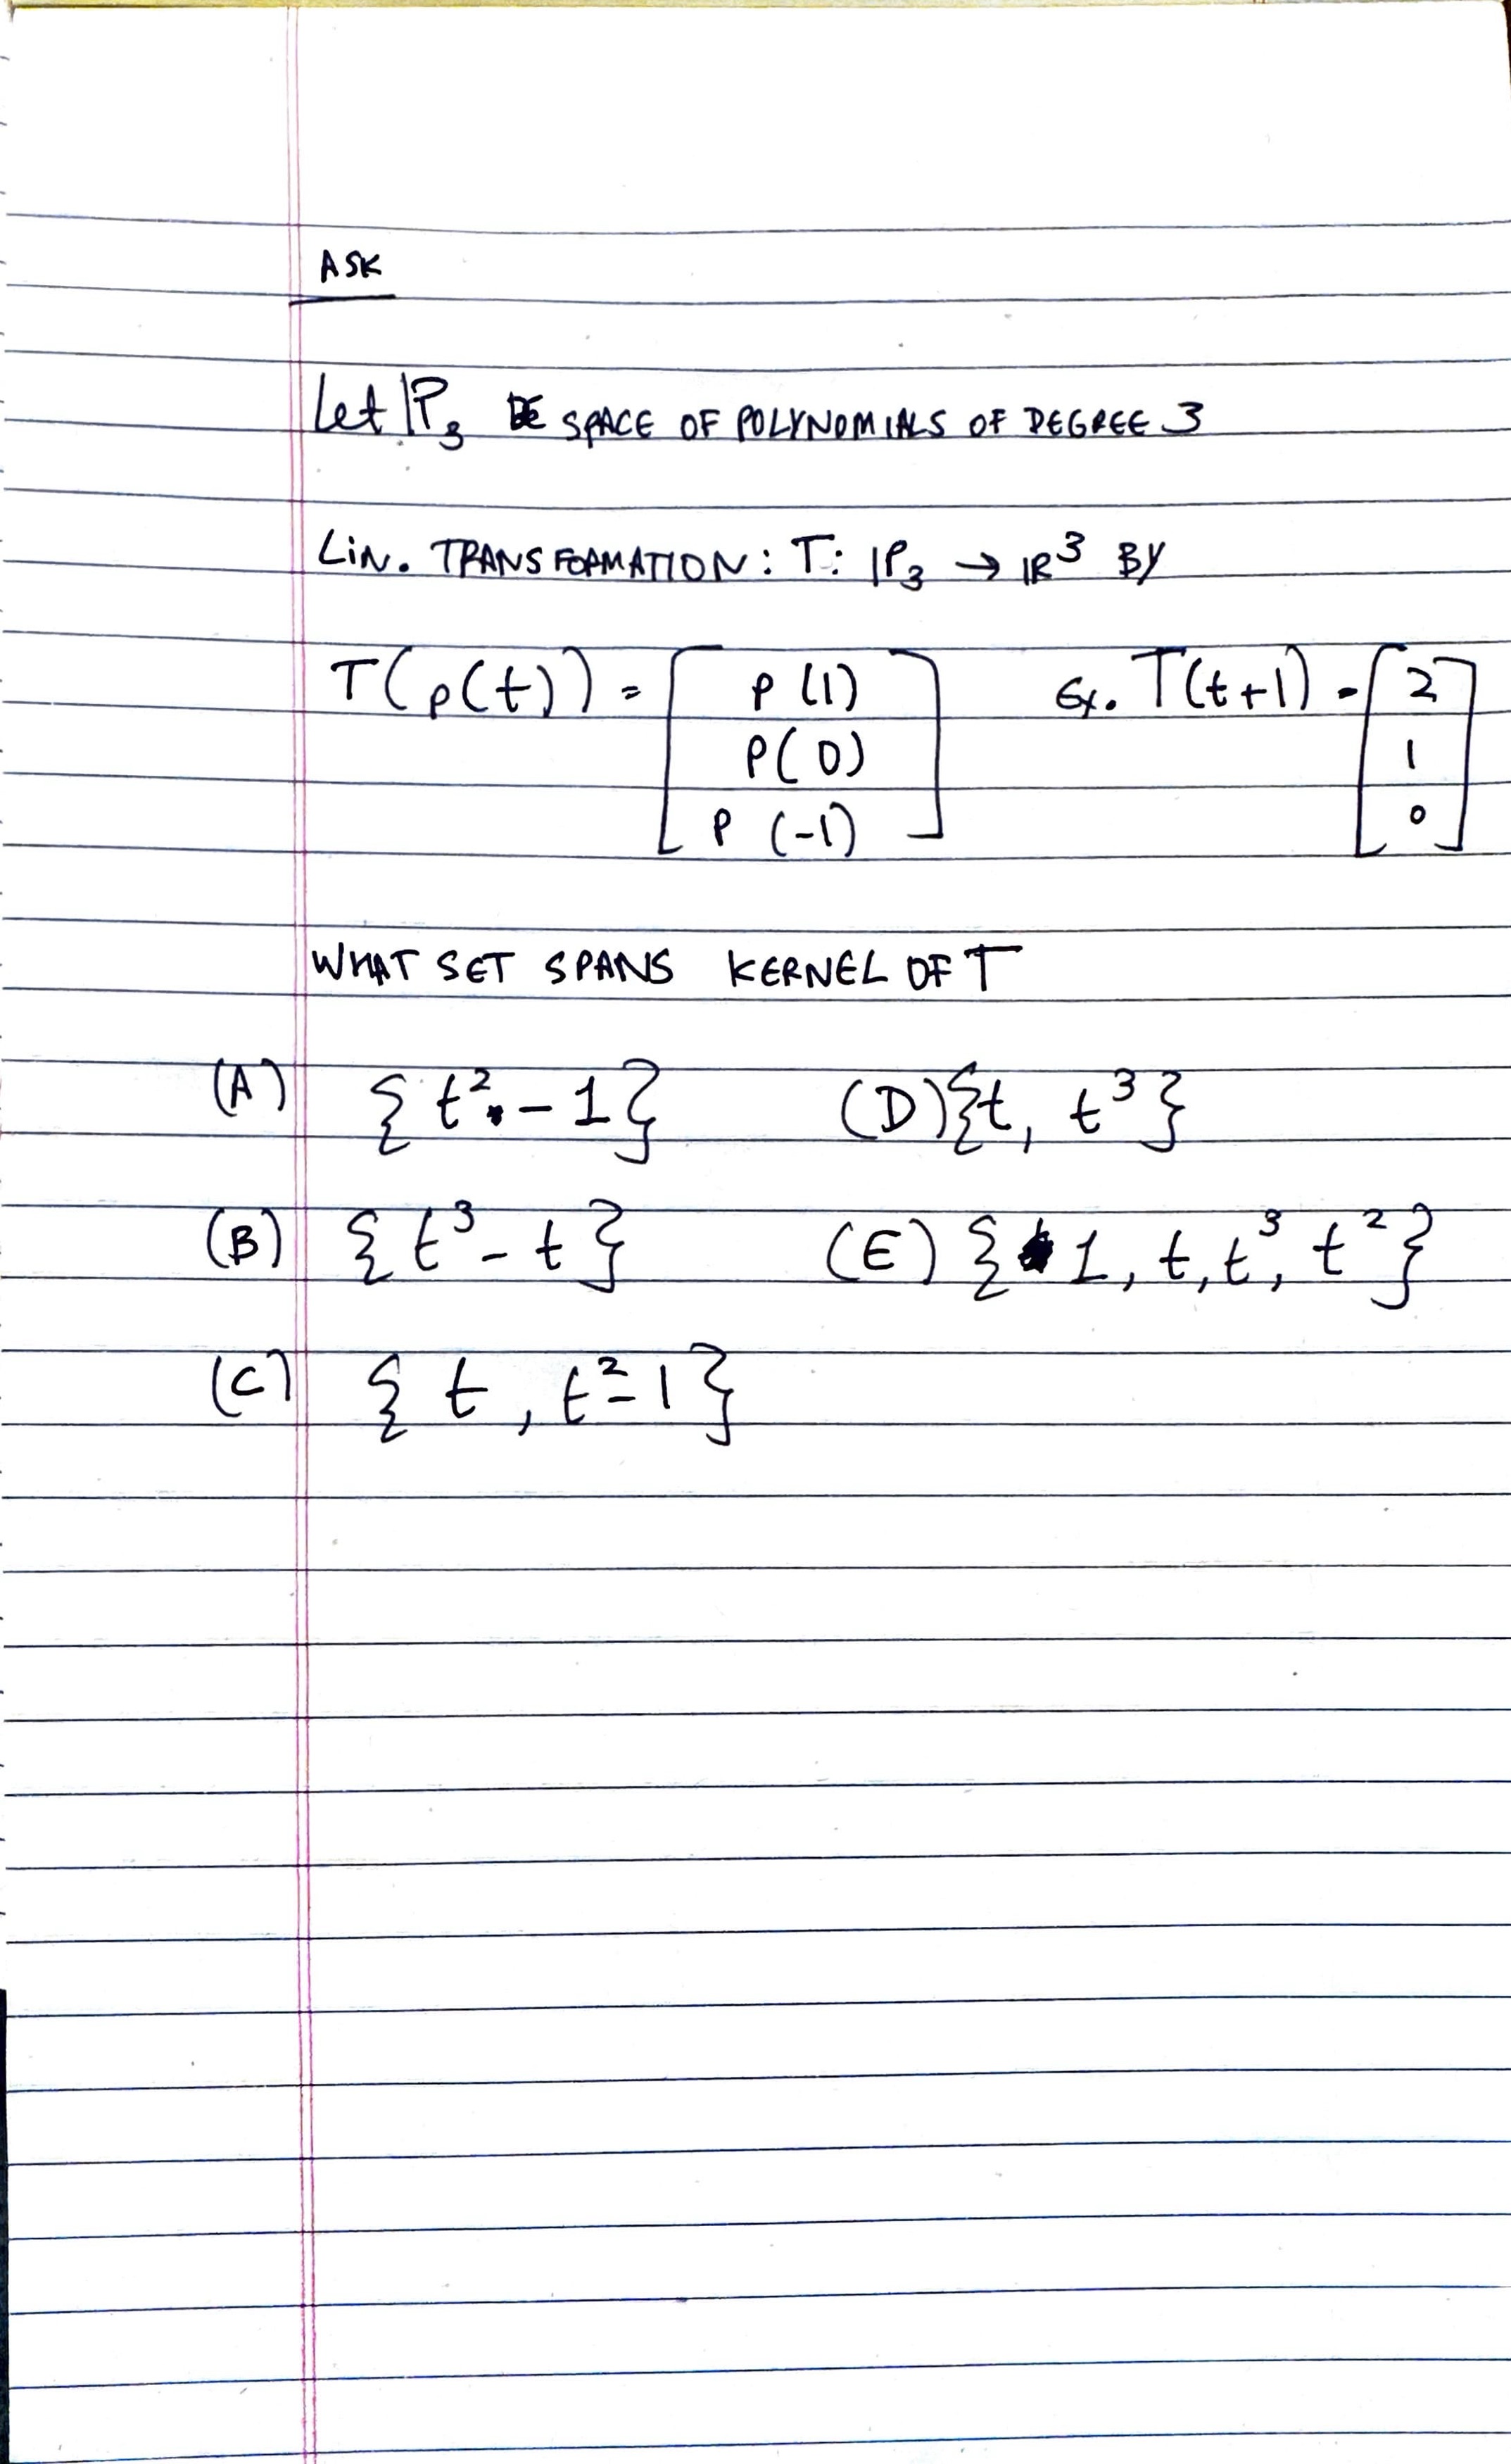 ASK
Let ℙ₃ BE SPACE OF POLYNOMIALS OF DEGREE 3
LIN. TRANSFORMATION: T: ℙ₃ → ℝ³ BY
T(p(t)) = [ p(1) Ex. T(t+1) = [ 2 ]
P(0) 1
P(-1) ] 0 ]
WHAT SET SPANS KERNEL OF T
(A) {t² - 1} (D) {t, t³}
(B) {t³ - t} (E) {1, t, t³, t²}
(C) {t, t² - 1}